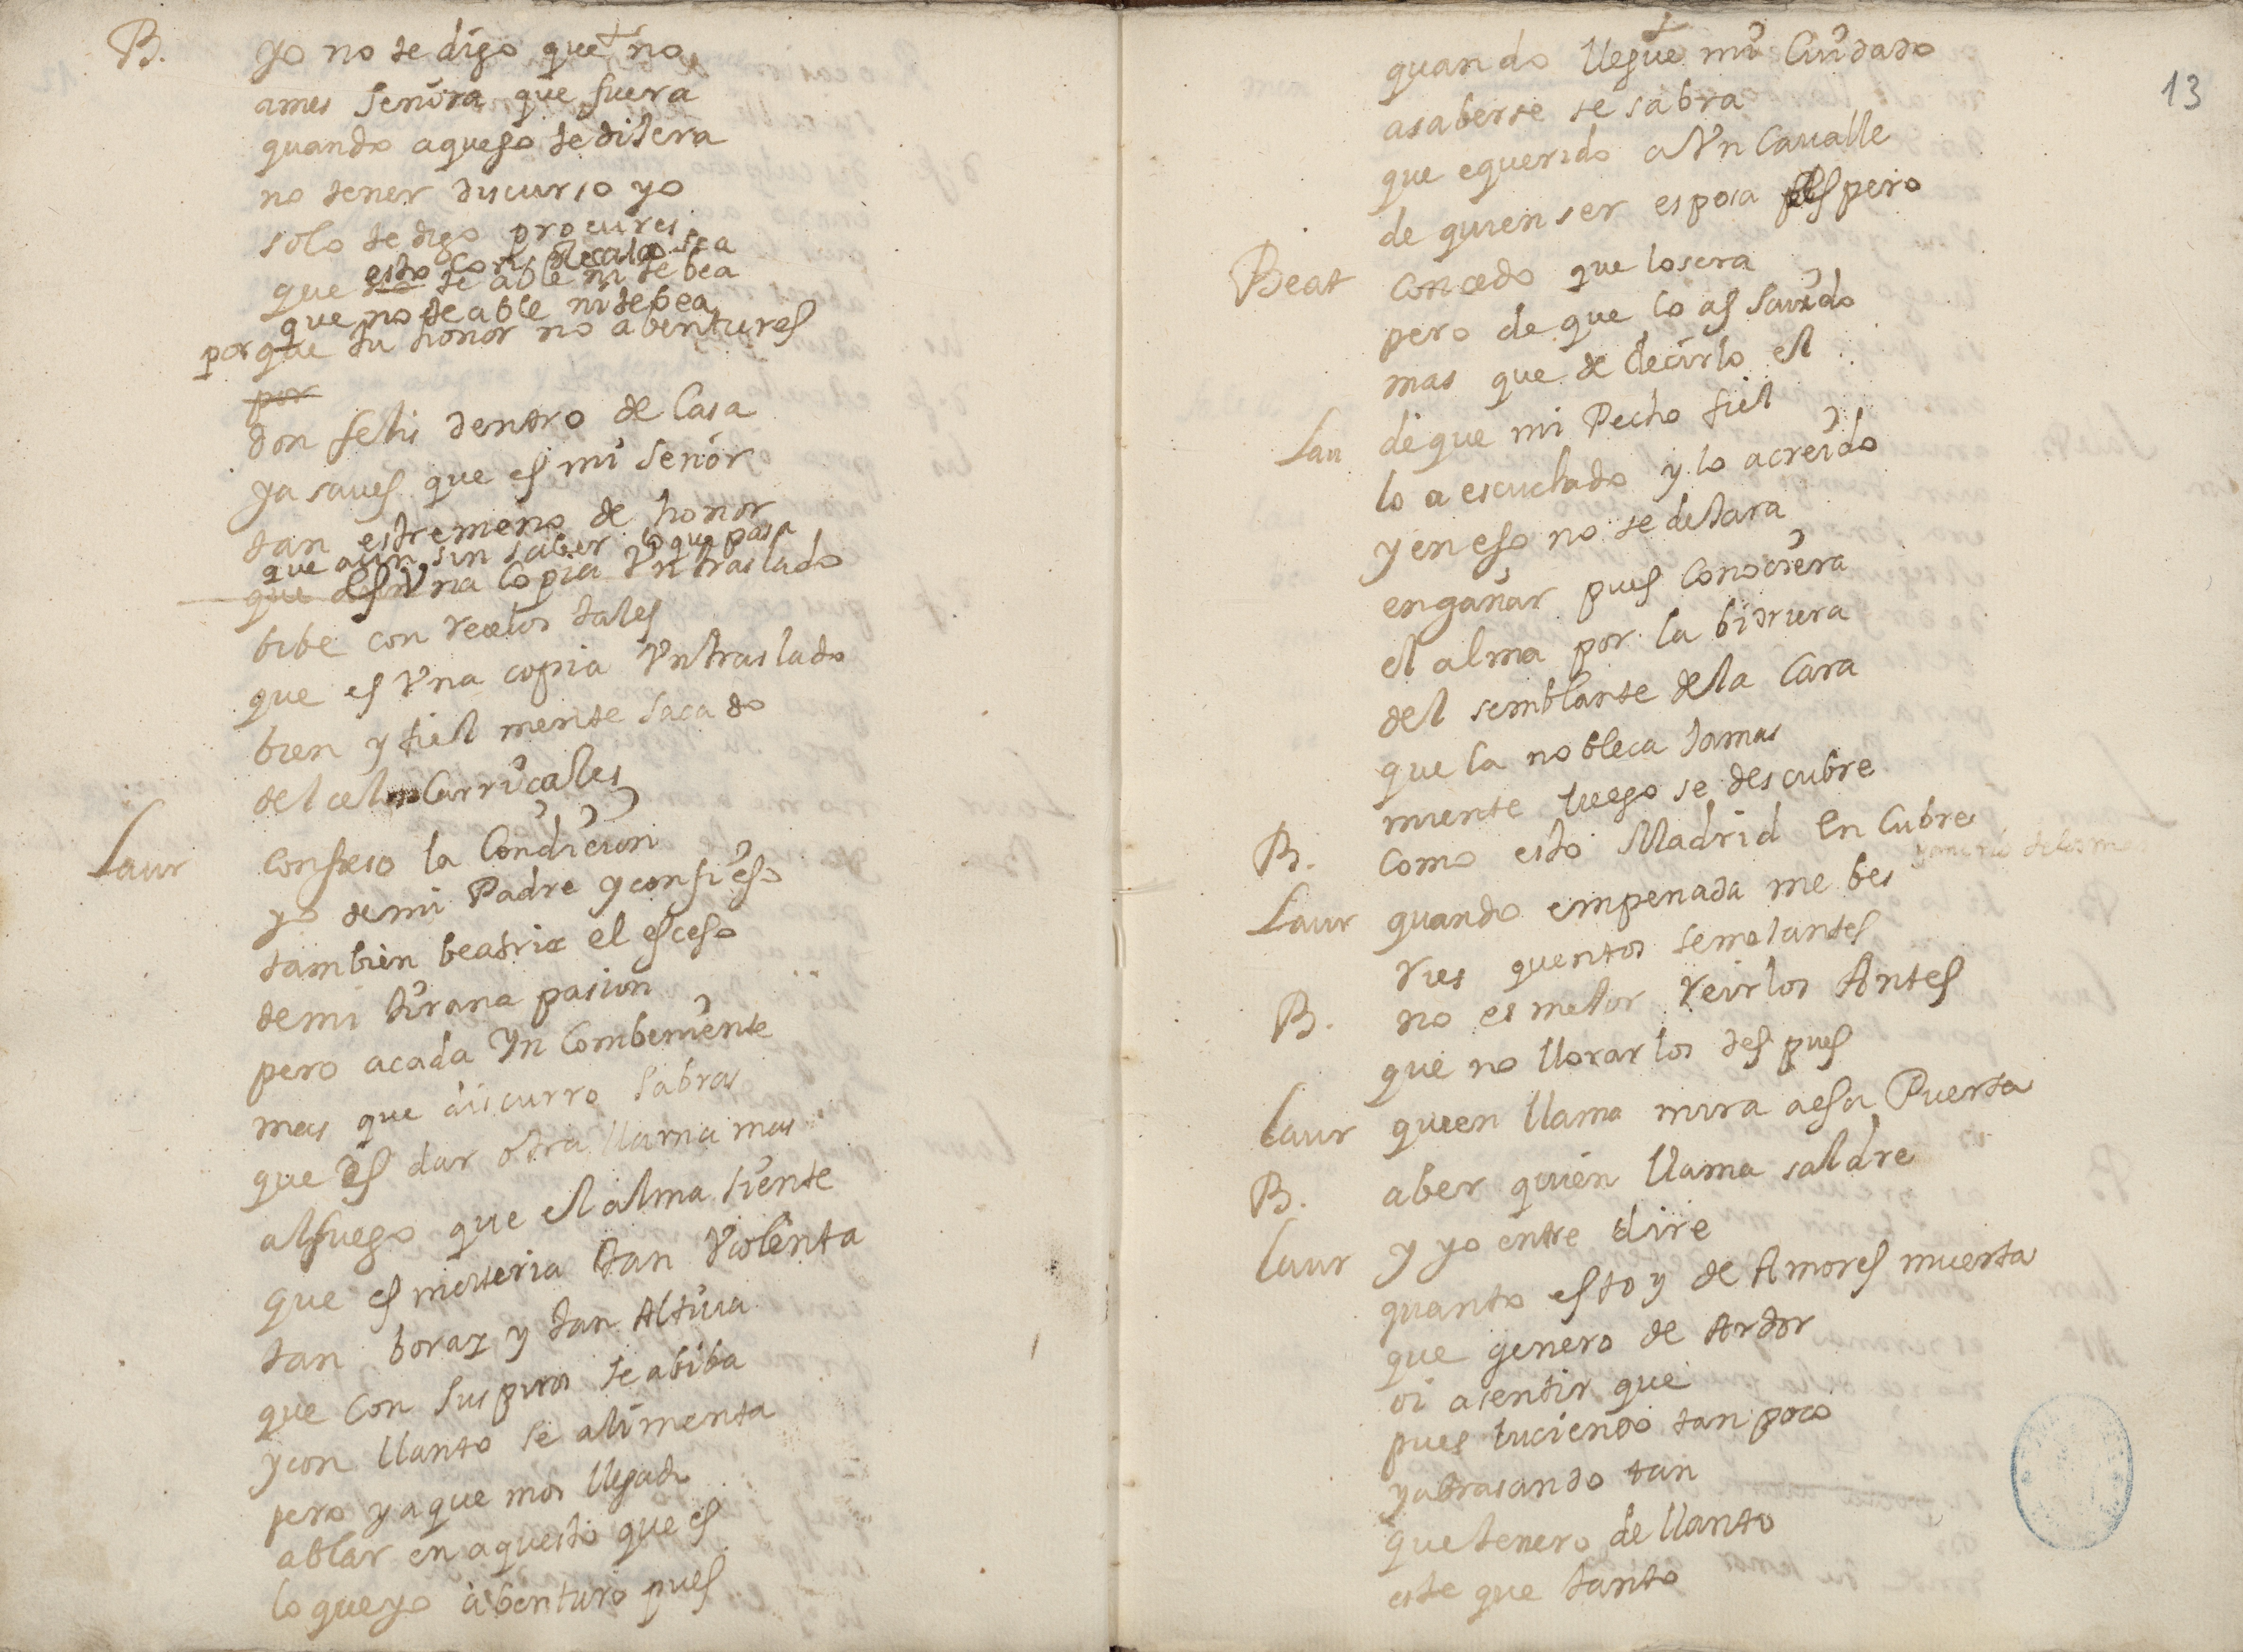 B. yo no te digo que no
ames señora que fuera
quando aqueso te dijera
no tener discurso yo
solo te digo procures
esto con recato sea
que te able ni te bea
que no te able ni te bea
porque tu honor no abentures
por
don felis dentro de Casa
ya saues que es mi señor
tan estremeño de honor
que aun sin saber lo que pasa
que es Vna Copia Vn traslado
bibe con recelos tales
que es Vna copia Vn traslado
bien y fiel mente sacado
del celo Carriçales
Laur confieso la Condicion
yo de mi Padre y confieso
tambien beatriz el esceso
de mi tirana pasion
pero a cada Yn combeniente
mas que discurro sabras
que es dar otra llama mas
al fuego que el alma siente
que es materia tan Violenta
tan boraz y tan Altiua
que con suspiros se abiba
y con llanto se alimenta
pero ya que emos llegado
ablar en aquesto que es
lo que yo abenturo pues
13
quando llegue mi Cuidado
a saberse se sabra
que e querido a Vn Cauallero
de quien ser esposa espero
Beat concedo que lo sera
pero de que lo as sauido
mas que de decirlo el
Lau de que mi Pecho fiel
lo a escuchado y lo a creido
y en eso no se dejara
engañar pues conociera
el alma por la bidriera
del semblante de la Cara
que la nobleca jamas
miente luego se descubre
B. como esto Madrid encubre
Laur quando empeñada me bes
ries quentos semejantes
B. no es mejor reirlos Antes
que no llorarlos despues
Laur quien llama mira a esa Puerta
B. a ber quien llama saldre
Laur y yo entre dire
quanto estoy de Amores muerta
que genero de Ardor
oi a sentir que
pues luciendo tan poco
y abrasando tan
que jenero de llanto
este que tanto